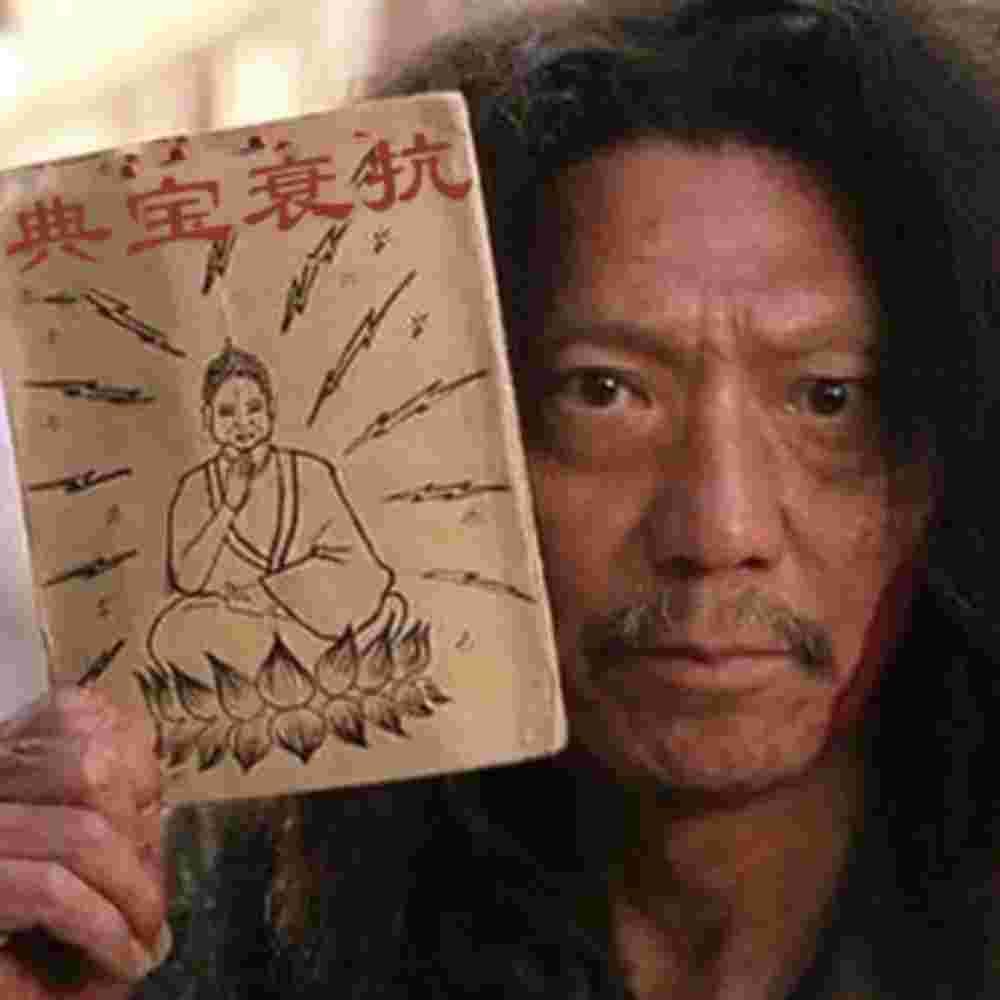 抗衰宝典